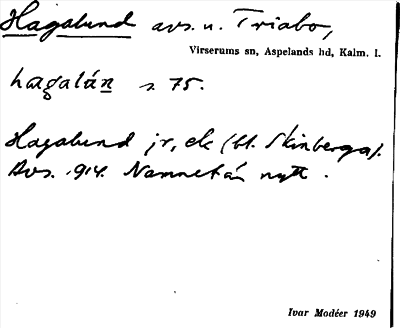 Hagalund avs. u. Triabo,
Virserums sn, Aspelands hd, Kalm. l.
hagalán s. 75.
Hagalund jr, ek (bl. Skinberga).
Avs. 1914. Namnet är nytt.
Ivar Modéer 1949